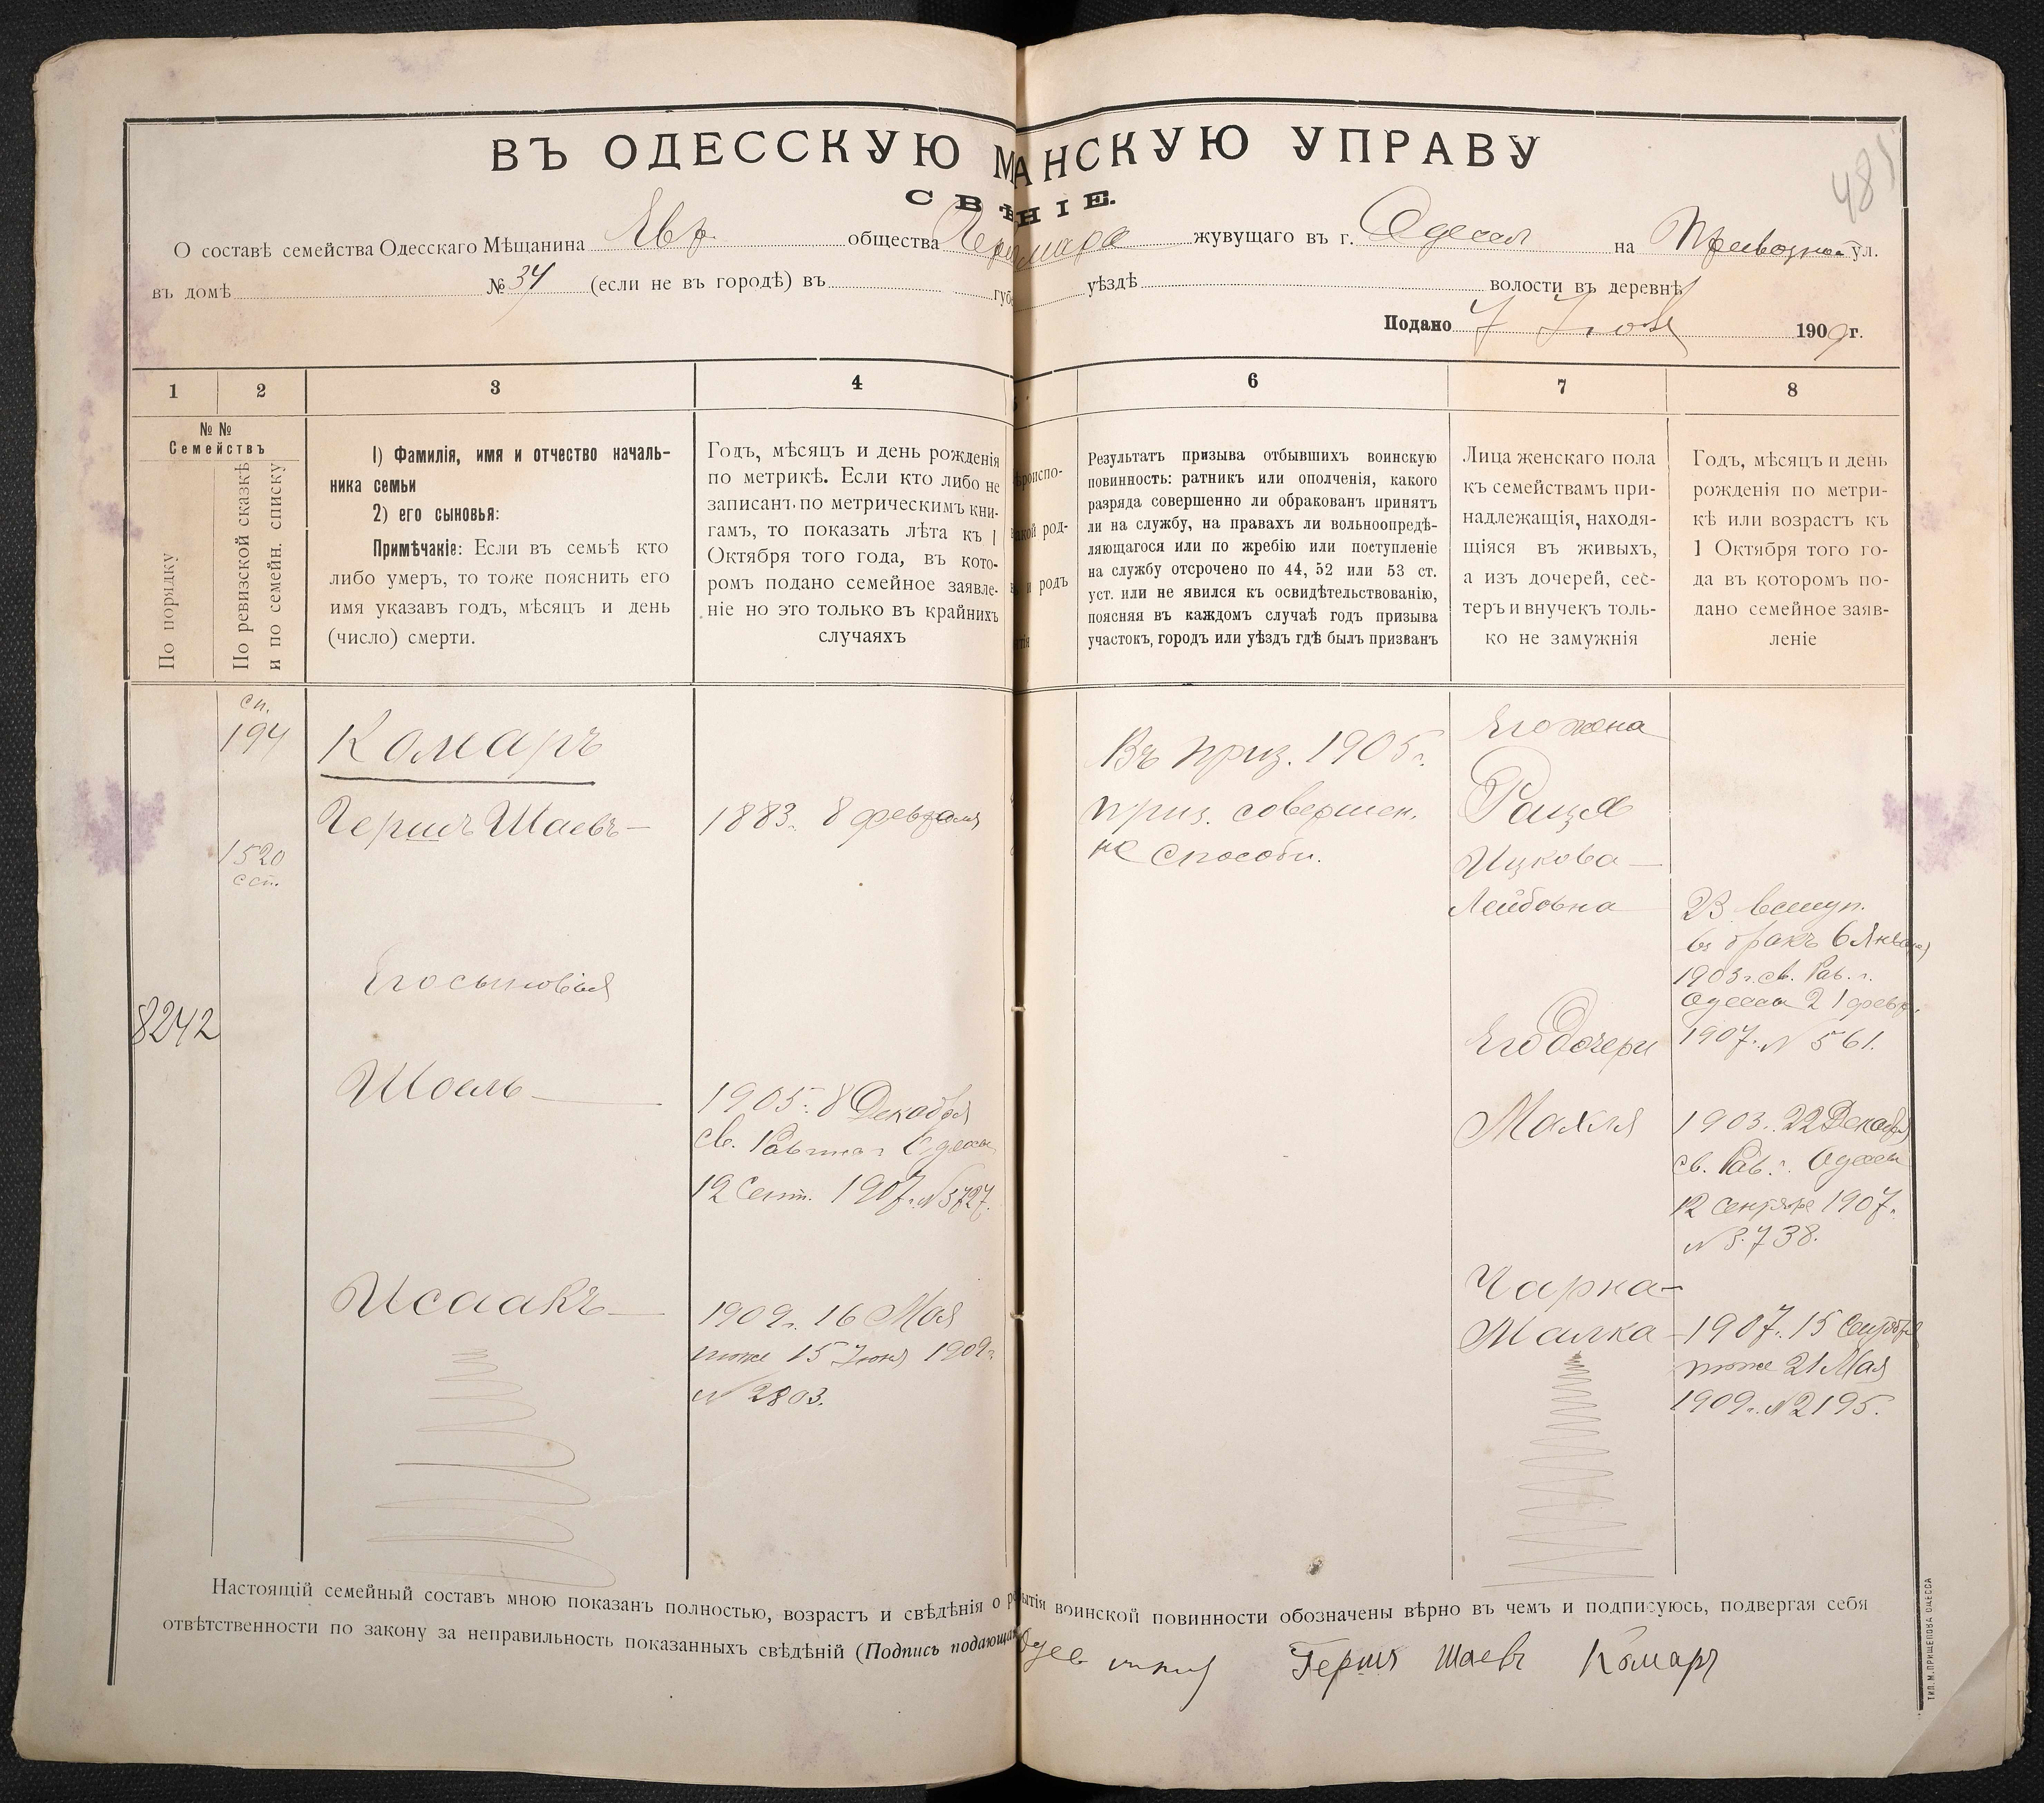 ВЪ ОДЕССКУЮ М АНСКУЮ УПРАВУ
СВѢ НІЕ.
481
О составѣ семейства Одесскаго Мѣщанина Евр. общества жувущаго въ г. Одесса на ул.
въ домѣ № 34 (если не въ городѣ) въ губ уѣздѣ волости въ деревнѣ
Подано 7 1909 г.
1 2 3 4 6 7 8
№ №
Семействъ
По порядку
По ревизской сказкѣ
и по семейн. списку
1) Фамилія, имя и отчество началь-
ника семьи
2) его сыновья:
Примѣчакіе: Если въ семьѣ кто
либо умеръ, то тоже пояснить его
имя указавъ годъ, мѣсяцъ и день
(число) смерти.
Годъ, мѣсяцъ и день рожденія
по метрикѣ. Если кто либо не
записанъ по метрическимъ кни-
гамъ, то показать лѣта къ 1
Октября того года, въ кото-
ромъ подано семейное заявле-
ніе но это только въ крайнихъ
случаяхъ
ѣроиспо-
акой род-
и родъ
Результатъ призыва отбывшихъ воинскую
повинность: ратникъ или ополченія, какого
разряда совершенно ли обракованъ принятъ
ли на службу, на правахъ ли вольноопредѣ-
ляющагося или по жребію или поступленіе
на службу отсрочено по 44, 52 или 53 ст.
уст. или не явился къ освидѣтельствованію,
поясняя въ каждомъ случаѣ годъ призыва
участокъ, городъ или уѣздъ гдѣ былъ призванъ
Лица женскаго пола
къ семействамъ при-
надлежащія, находя-
щіяся въ живыхъ,
а изъ дочерей, сес-
теръ и внучекъ толь-
ко не замужнія
Годъ, мѣсяцъ и день
рожденія по метри-
кѣ или возрастъ къ
1 Октября того го-
да въ которомъ по-
дано семейное заяв-
леніе
8242
сп.
194
1520
ссп.
Комаръ
Гершъ Шаевъ
Его сыновья
Шоель
Исаакъ
1883 г. 8 февраля
1905 г. 8 Декабря
св. Раввина г. Одессы
12 Сент. 1907 г. № 3727.
1909 г. 16 Мая
тоже 15 Іюня 1909 г.
№ 2803.
Въ приз. 1905 г.
приз. совершен.
не способн.
Его жена
Рация
Ицкова
Лейбовна
Его дочери
Махля
Чарна-
Малка
23 вступ.
въ бракъ 6 Января
1903 г. св. Рав. г.
Одессы 21 февр.
1907 г. № 561.
1903 г. 22 Декабря
св. Рав. г. Одессы
12 сентября 1907 г.
№ 3738.
1907 г. 15 Сентября
тоже 21 Мая
1909 г. № 2195.
Настоящій семейный составъ мною показанъ полностью, возрастъ и свѣдѣнія о ытія воинской повинности обозначены вѣрно въ чемъ и подписуюсь, подвергая себя
отвѣтственности по закону за неправильность показанныхъ свѣдѣній (Подпись подающа
Гершъ Шаевъ Комаръ
ТИП. М. ПРИЩЕПОВА ОДЕССА